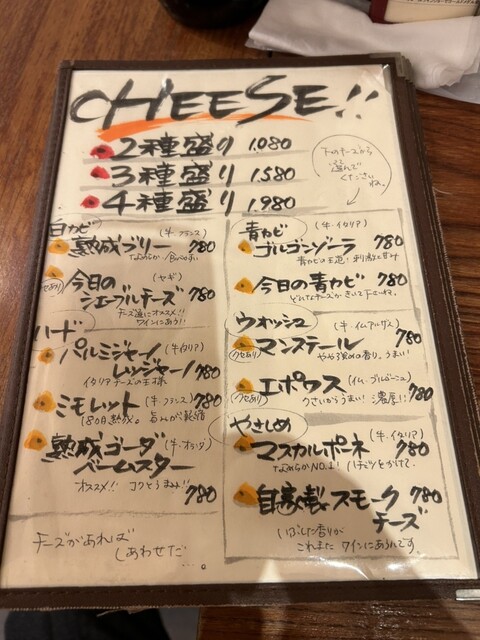 CHEESE!!
2種盛り 1,080
3種盛り 1,580
4種盛り 1,980
下のチーズから
選んで
ください
ね。
白カビ
(牛・フランス)
熟成ブリー 780
なめらか
クセあり
(ヤギ)
今日の
シェーブルチーズ 780
チーズ通にオススメ!!
ワインにあう!!
ハード
(牛・イタリア)
パルミジャーノ
レッジャーノ 780
イタリアチーズの王様
ミモレット (牛・フランス) 780
180日熟成。旨みが
熟成ゴーダ (牛・オランダ)
バームスター
オススメ!! コクとうまみ!! 780
チーズがあれば
しあわせだ
...。
青カビ (牛・イタリア)
ゴルゴンゾーラ 780
青カビの王道! 刺激と甘み
今日の青カビ 780
どんなチーズかきいて下さいね。
ウォッシュ (牛・アルザス)
クセあり
マンステール 780
やや強めの香り、うまい!
クセあり
エポワス (ブルゴーニュ) 780
くさいがうまい! 濃厚!!
やさしめ
(牛・イタリア)
マスカルポーネ 780
なめらかNO.1! ハチミツをかけて。
自家製スモーク 780
チーズ
いぶした香りが
これまたワインにあうんです。